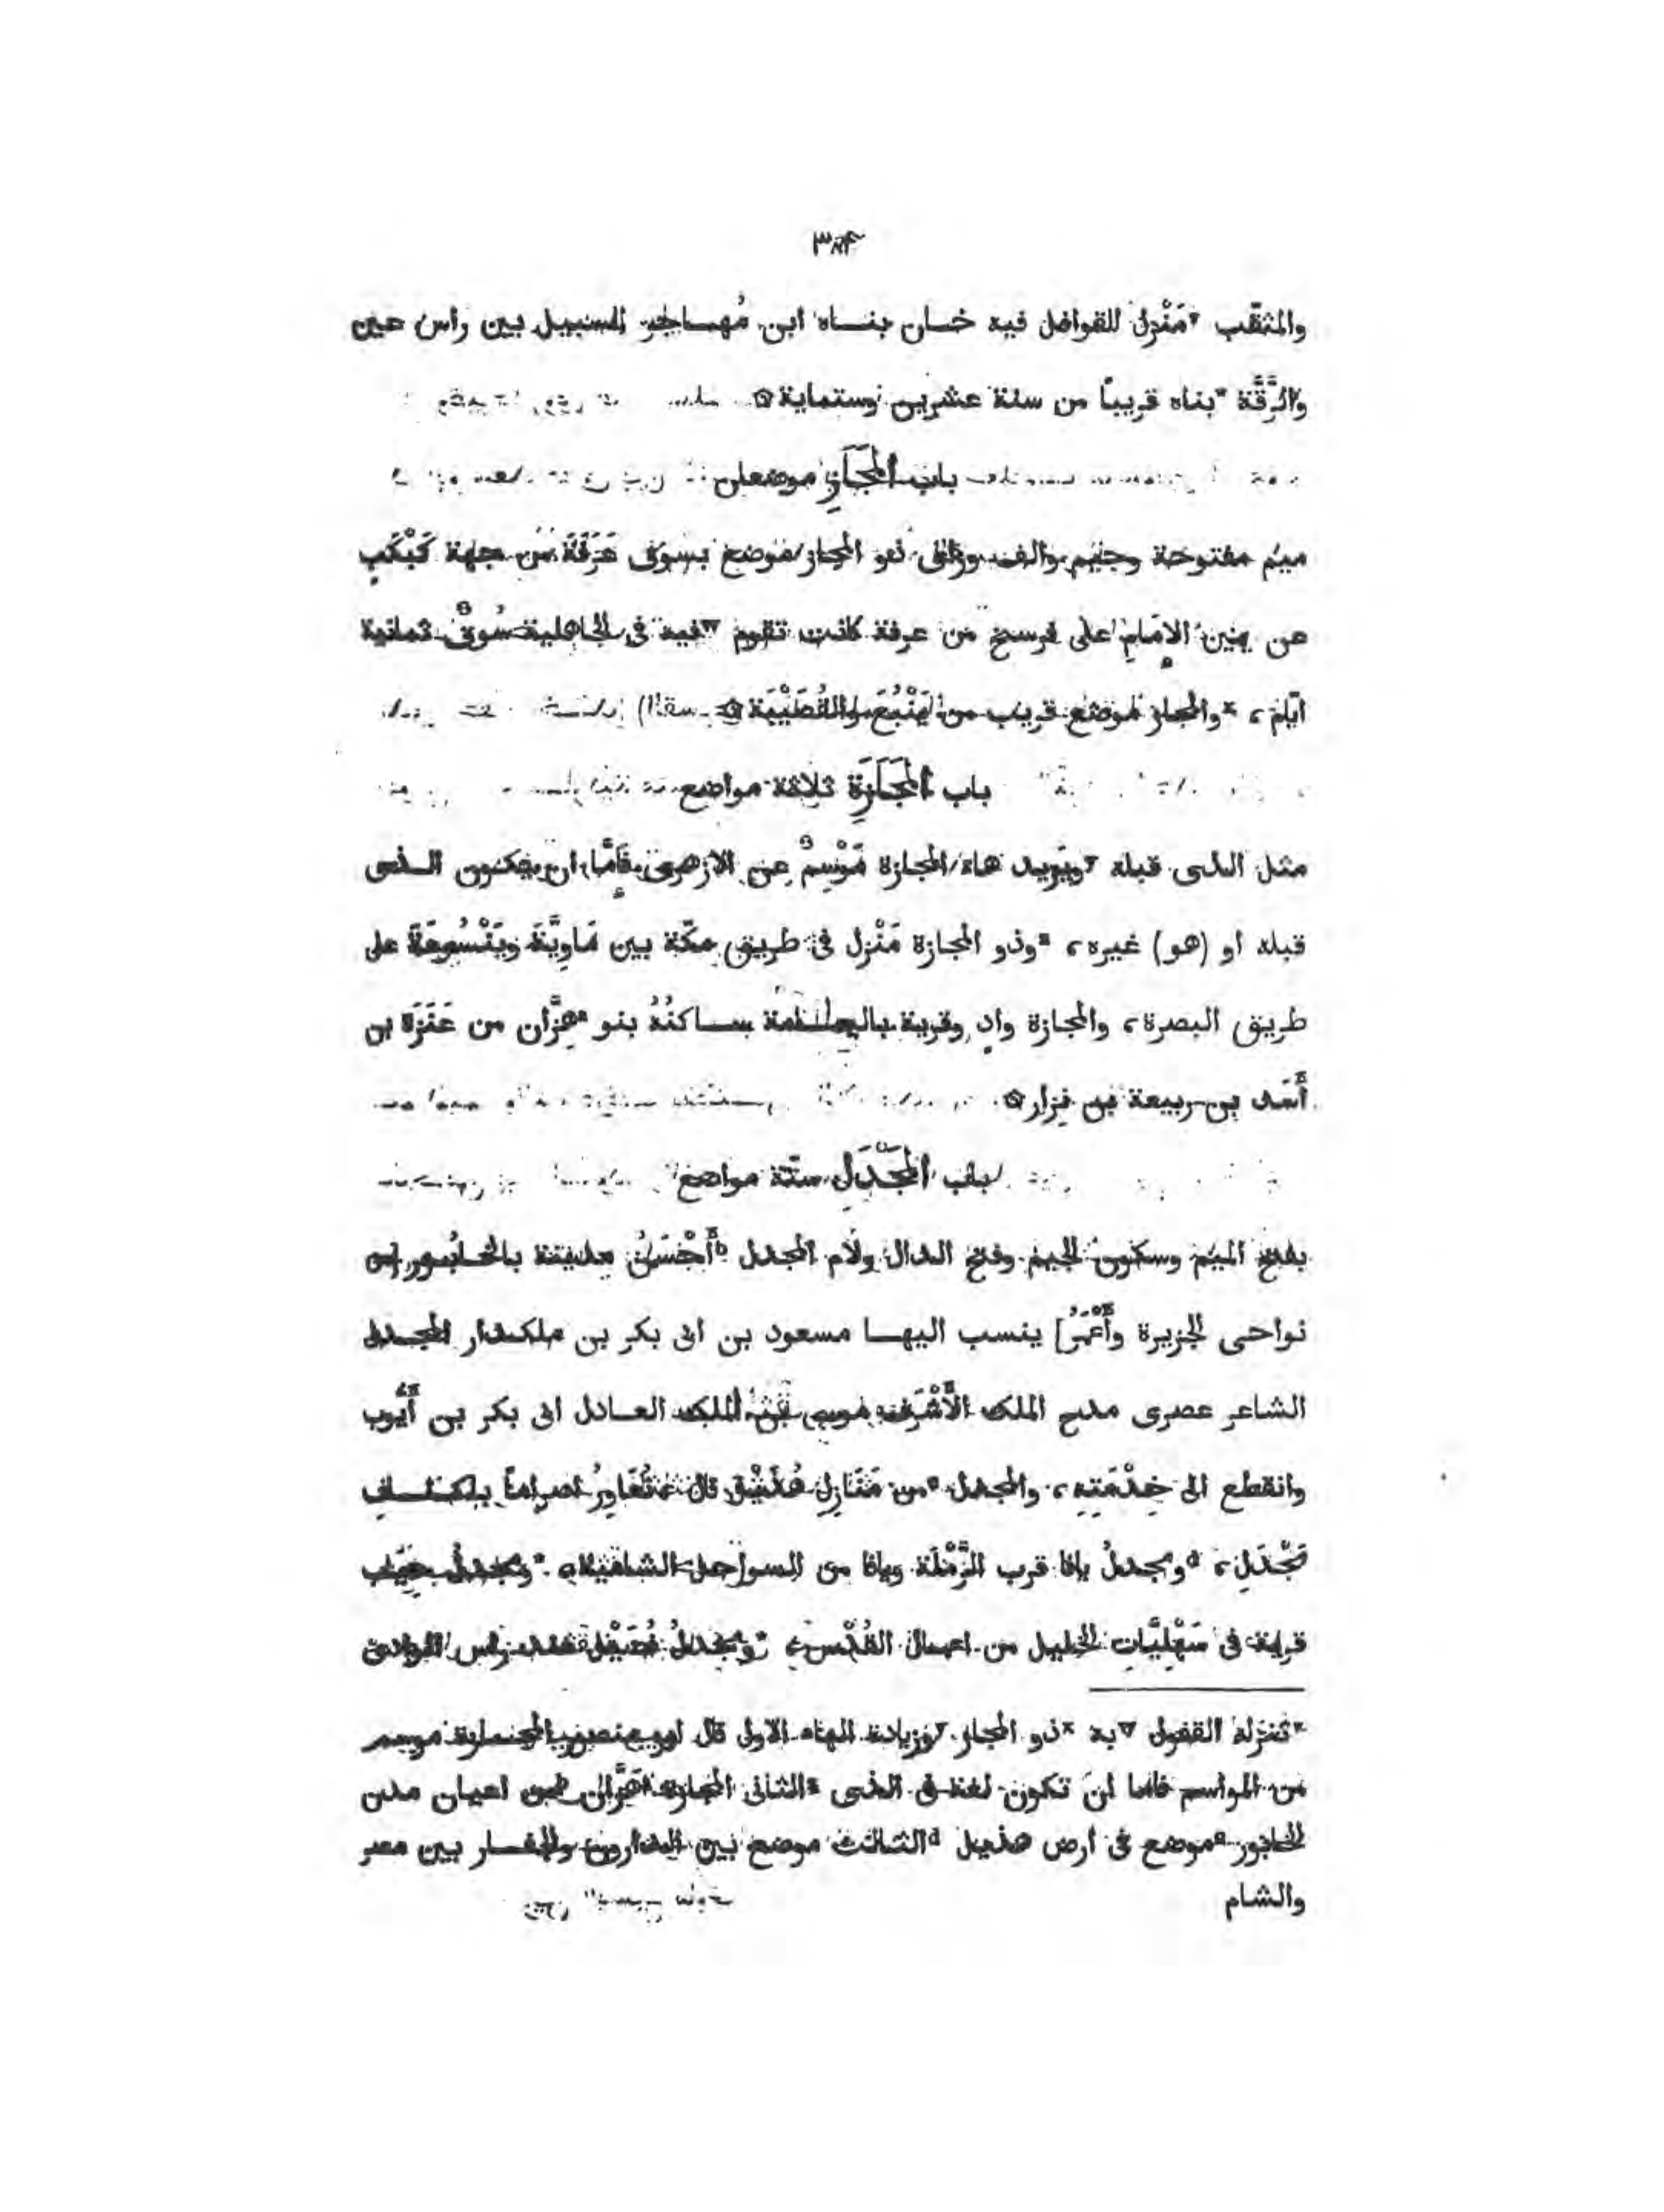 ٣٨٤
والمثقّب مَنْزِل للقوافل فيه خان بناه ابن مُهاجر السبيل بين راس عين
والرَّقَّة بناه قريبًا من سنة عشرين وستماية
باب المَجَازِ موضعان
ميم مفتوحة وجيم والف وزاى ذو المجاز موضع بسوق عَرَفَةَ من جهة كَبْكَبٍ
عن يمين الإمامِ على فرسخ من عرفة كانت تقوم فيه فى الجاهلية سُوقٌ ثمانية
ايّام، والمجاز موضع قريب من يَنْبُعَ والقُصَيْبَة
باب المَجَازَةِ ثلاثة مواضع
مثل الذى قبله ويزيد هاء المجازة مَوْسِمٌ عن الازهرى فإمّا ان يكون الذى
قبله او (هو) غيره، وذو المجازة مَنْزِل فى طريق مكّة بين مَاوِيَّةَ ويَنْسُوعَةَ على
طريق البصرة، والمجازة وادٍ وقرية باليمامة ساكنُهُ بنو هِزَّان من عَنَزَة بن
أَسَد بن ربيعة بن نِزار
باب المَجْدَلِ ستّة مواضع
بفتح الميم وسكون الجيم وفتح الدال ولام المجدل أَحْسَنُ مدينة بالخابُور من
نواحى الجزيرة وأَعْمَرُ] ينسب اليها مسعود بن ابى بكر بن ملكدار المجدلى
الشاعر عصرى مدح الملك الأَشْرَف موسى بن الملك العادل ابى بكر بن أَيّوب
وانقطع الى خِدْمَتِهِ، والمجدل من مَنَازِل هُذَيْل قال
مَجْدَلِ، ومجدلُ يافا قرب الرَّمْلَة ويافا من السواحل الشامية، ومجدلُ
قرية فى سَهْلِيَّاتِ الخليل من اعمال القُدْس، ومجدلُ فُضَيْل عند راس الوادى
تنزله القفول به ذو المجاز وزيادة الهاء الاولى قال ابو منصور المجازة موسم
من المواسم فاما ان تكون لغة فى الذى الثانى المجازة هِزَّان من اعيان مدن
الخابور موضع فى ارض هذيل الثالث موضع بين الدارون والجفار بين مصر
والشام